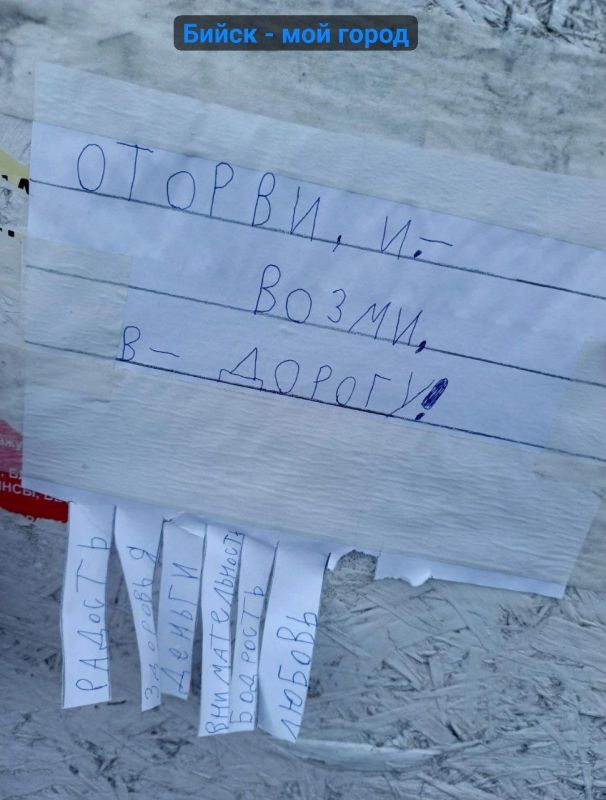 Бийск - мой город
ОТОРВИ, И.-
ВОЗМИ,
В- ДОРОГУ!
РАДОСТЬ
ЗДОРОВЬЯ
ДЕНЬГИ
ВНИМАТЕЛЬНОСТЬ
БОДРОСТЬ
ЛЮБОВЬ